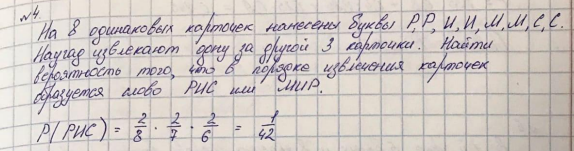 №4.
На 8 одинаковых карточек нанесены буквы Р, Р, И, И, М, М, С, С.
Наугад извлекают одну за другой 3 карточки. Найти
вероятность того, что в порядке извлечения карточек
образуется слово РИС или МИР.
P(РИС) = 2/8 · 2/7 · 2/6 = 1/42